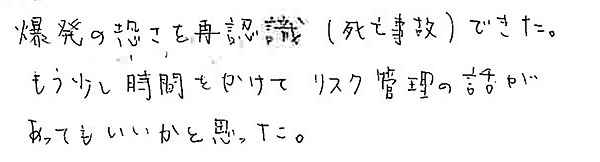 爆発の恐さを再認識（死亡事故）できた。
もう少し時間をかけてリスク管理の話が
あってもいいかと思った。